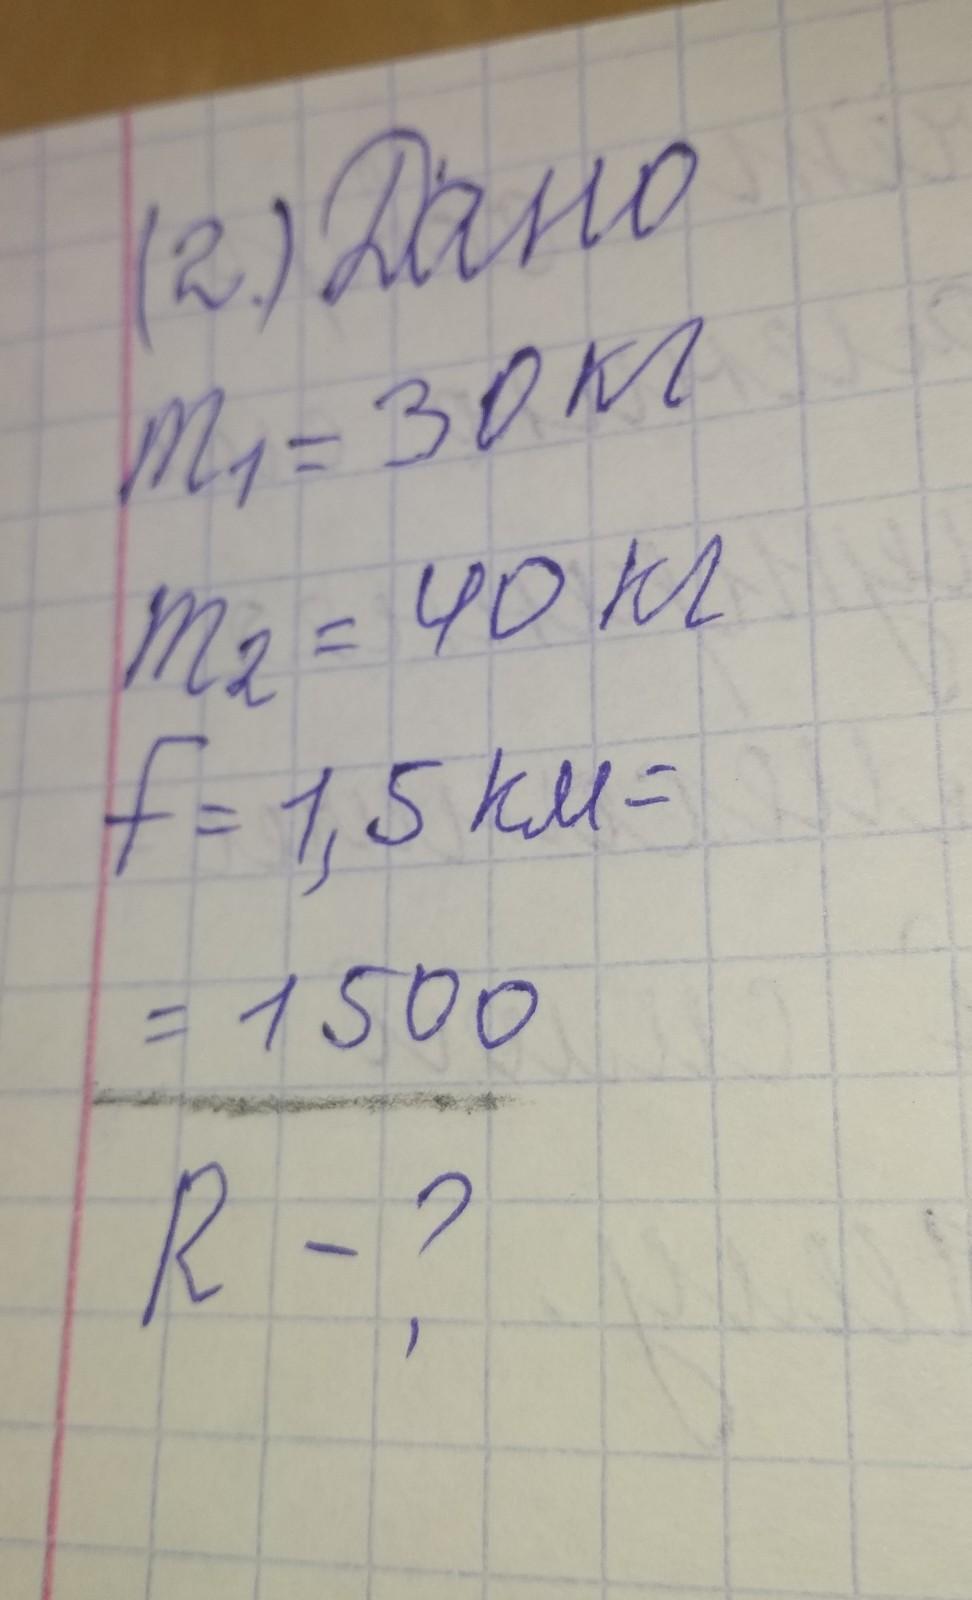 (2.) Дано
m1 = 30 кг
m2 = 40 кг
f = 1,5 км =
= 1500
R - ?